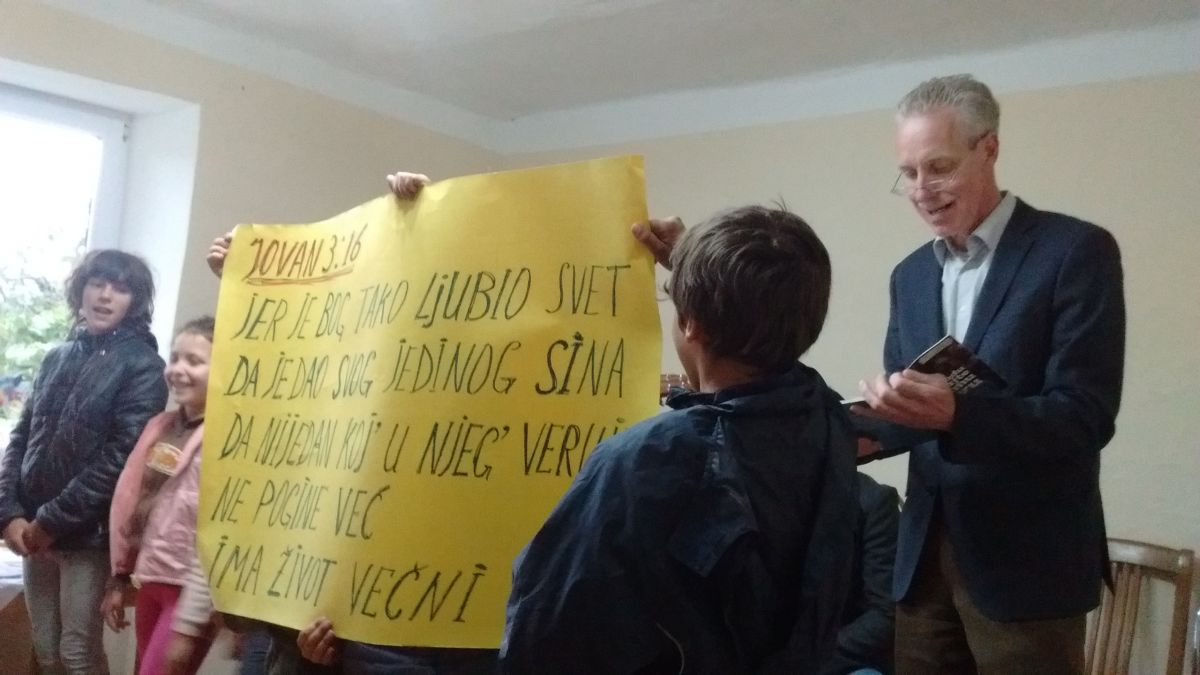 JOVAN 3:16
JER JE BOG TAKO LJUBIO SVET
DA JE DAO SVOG JEDINOG SINA
DA NIJEDAN KOJ' U NJEG'
NE POGINE VEĆ
IMA ŽIVOT VEČNI